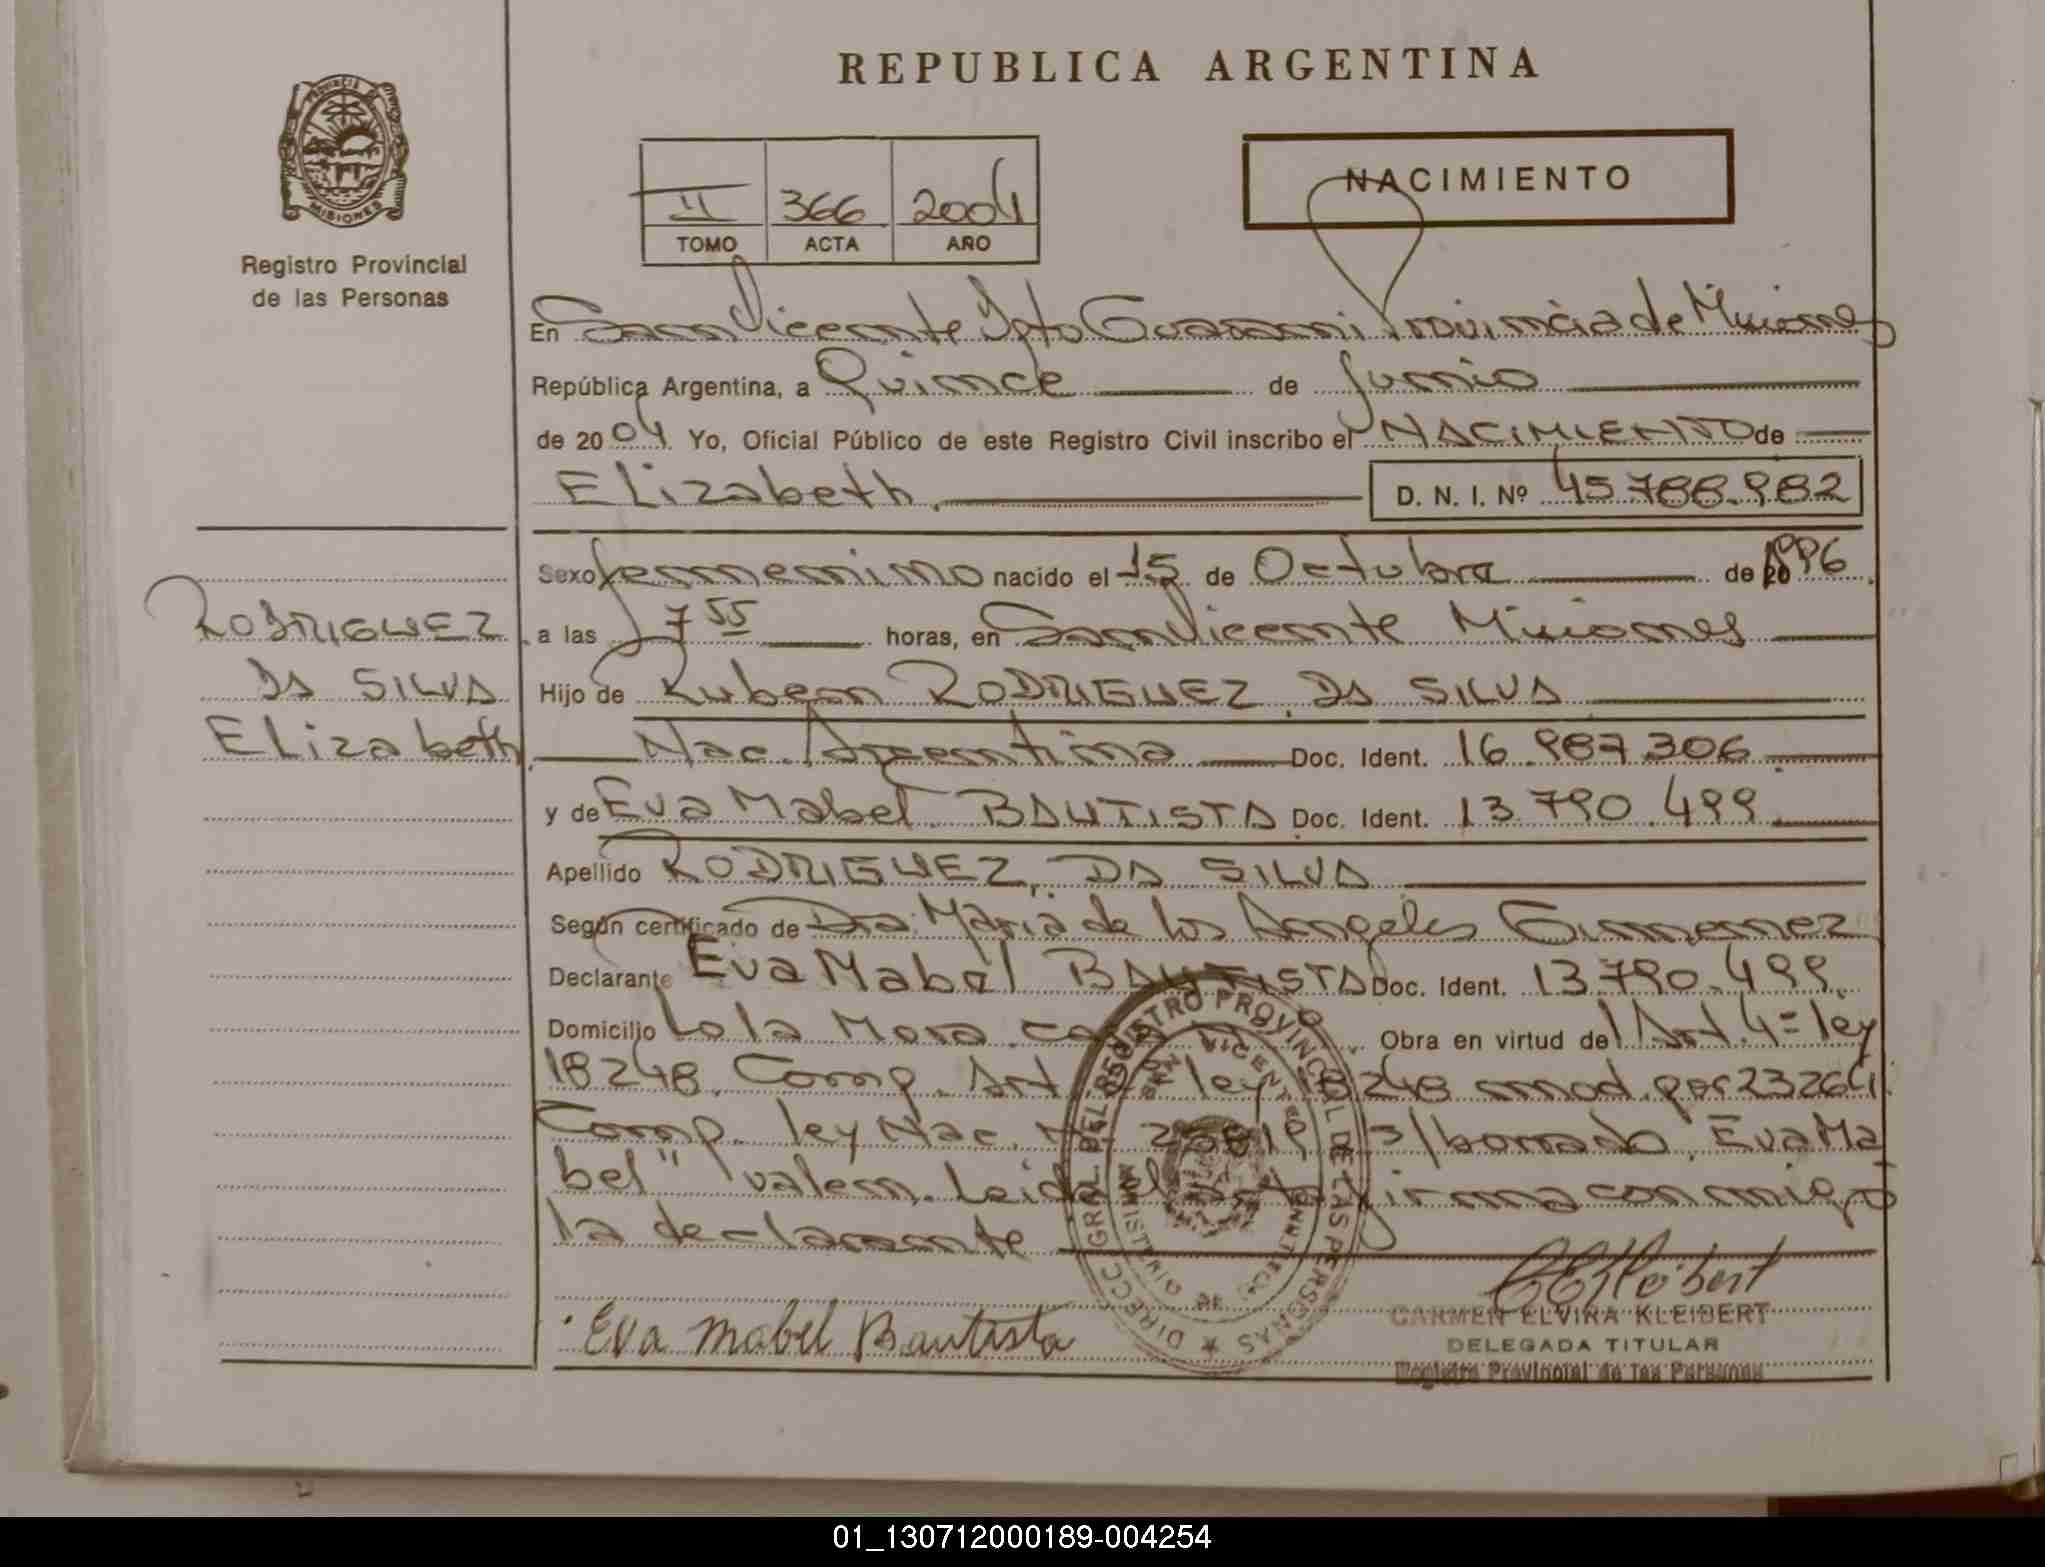 REPUBLICA ARGENTINA
PROVINCIA DE
MISIONES
Registro Provincial
de las Personas
II 366 2004
TOMO ACTA AÑO
NACIMIENTO
En San Vicente Dpto Guarani Provincia de Misiones
República Argentina, a Quince de Junio
de 2004 Yo, Oficial Público de este Registro Civil inscribo el NACIMIENTO de
Elizabeth D. N. I. Nº 45.788.982
Sexo femenino nacido el 15 de Octubre de 1996
a las 7 55 horas, en San Vicente Misiones
Hijo de Ruben RODRIGUEZ DA SILVA
Nac. Argentina Doc. Ident. 16.987.306
y de Eva Mabel BAUTISTA Doc. Ident. 13.790.499
Apellido RODRIGUEZ, DA SILVA
Según certificado de Dra. Maria de los Angeles Gimenez
Declarante Eva Mabel BAUTISTA Doc. Ident. 13.790.499
Domicilio Lola Mora Obra en virtud del Art. 4= ley
18248. Comp. Art ley 18248 mod. por 23264
Comp. ley Nac. s/borrado "Eva Ma
bel" valen. Leida el acta firma conmigo
la declarante
RODRIGUEZ
DA SILVA
Elizabeth
DIRECC. GRAL. DEL REGISTRO PROVINCIAL DE LAS PERSONAS
SAN VICENTE
Eva Mabel Bautista
CEKleibert
CARMEN ELVIRA KLEIBERT
DELEGADA TITULAR
Registro Provincial de las Personas
01_130712000189-004254